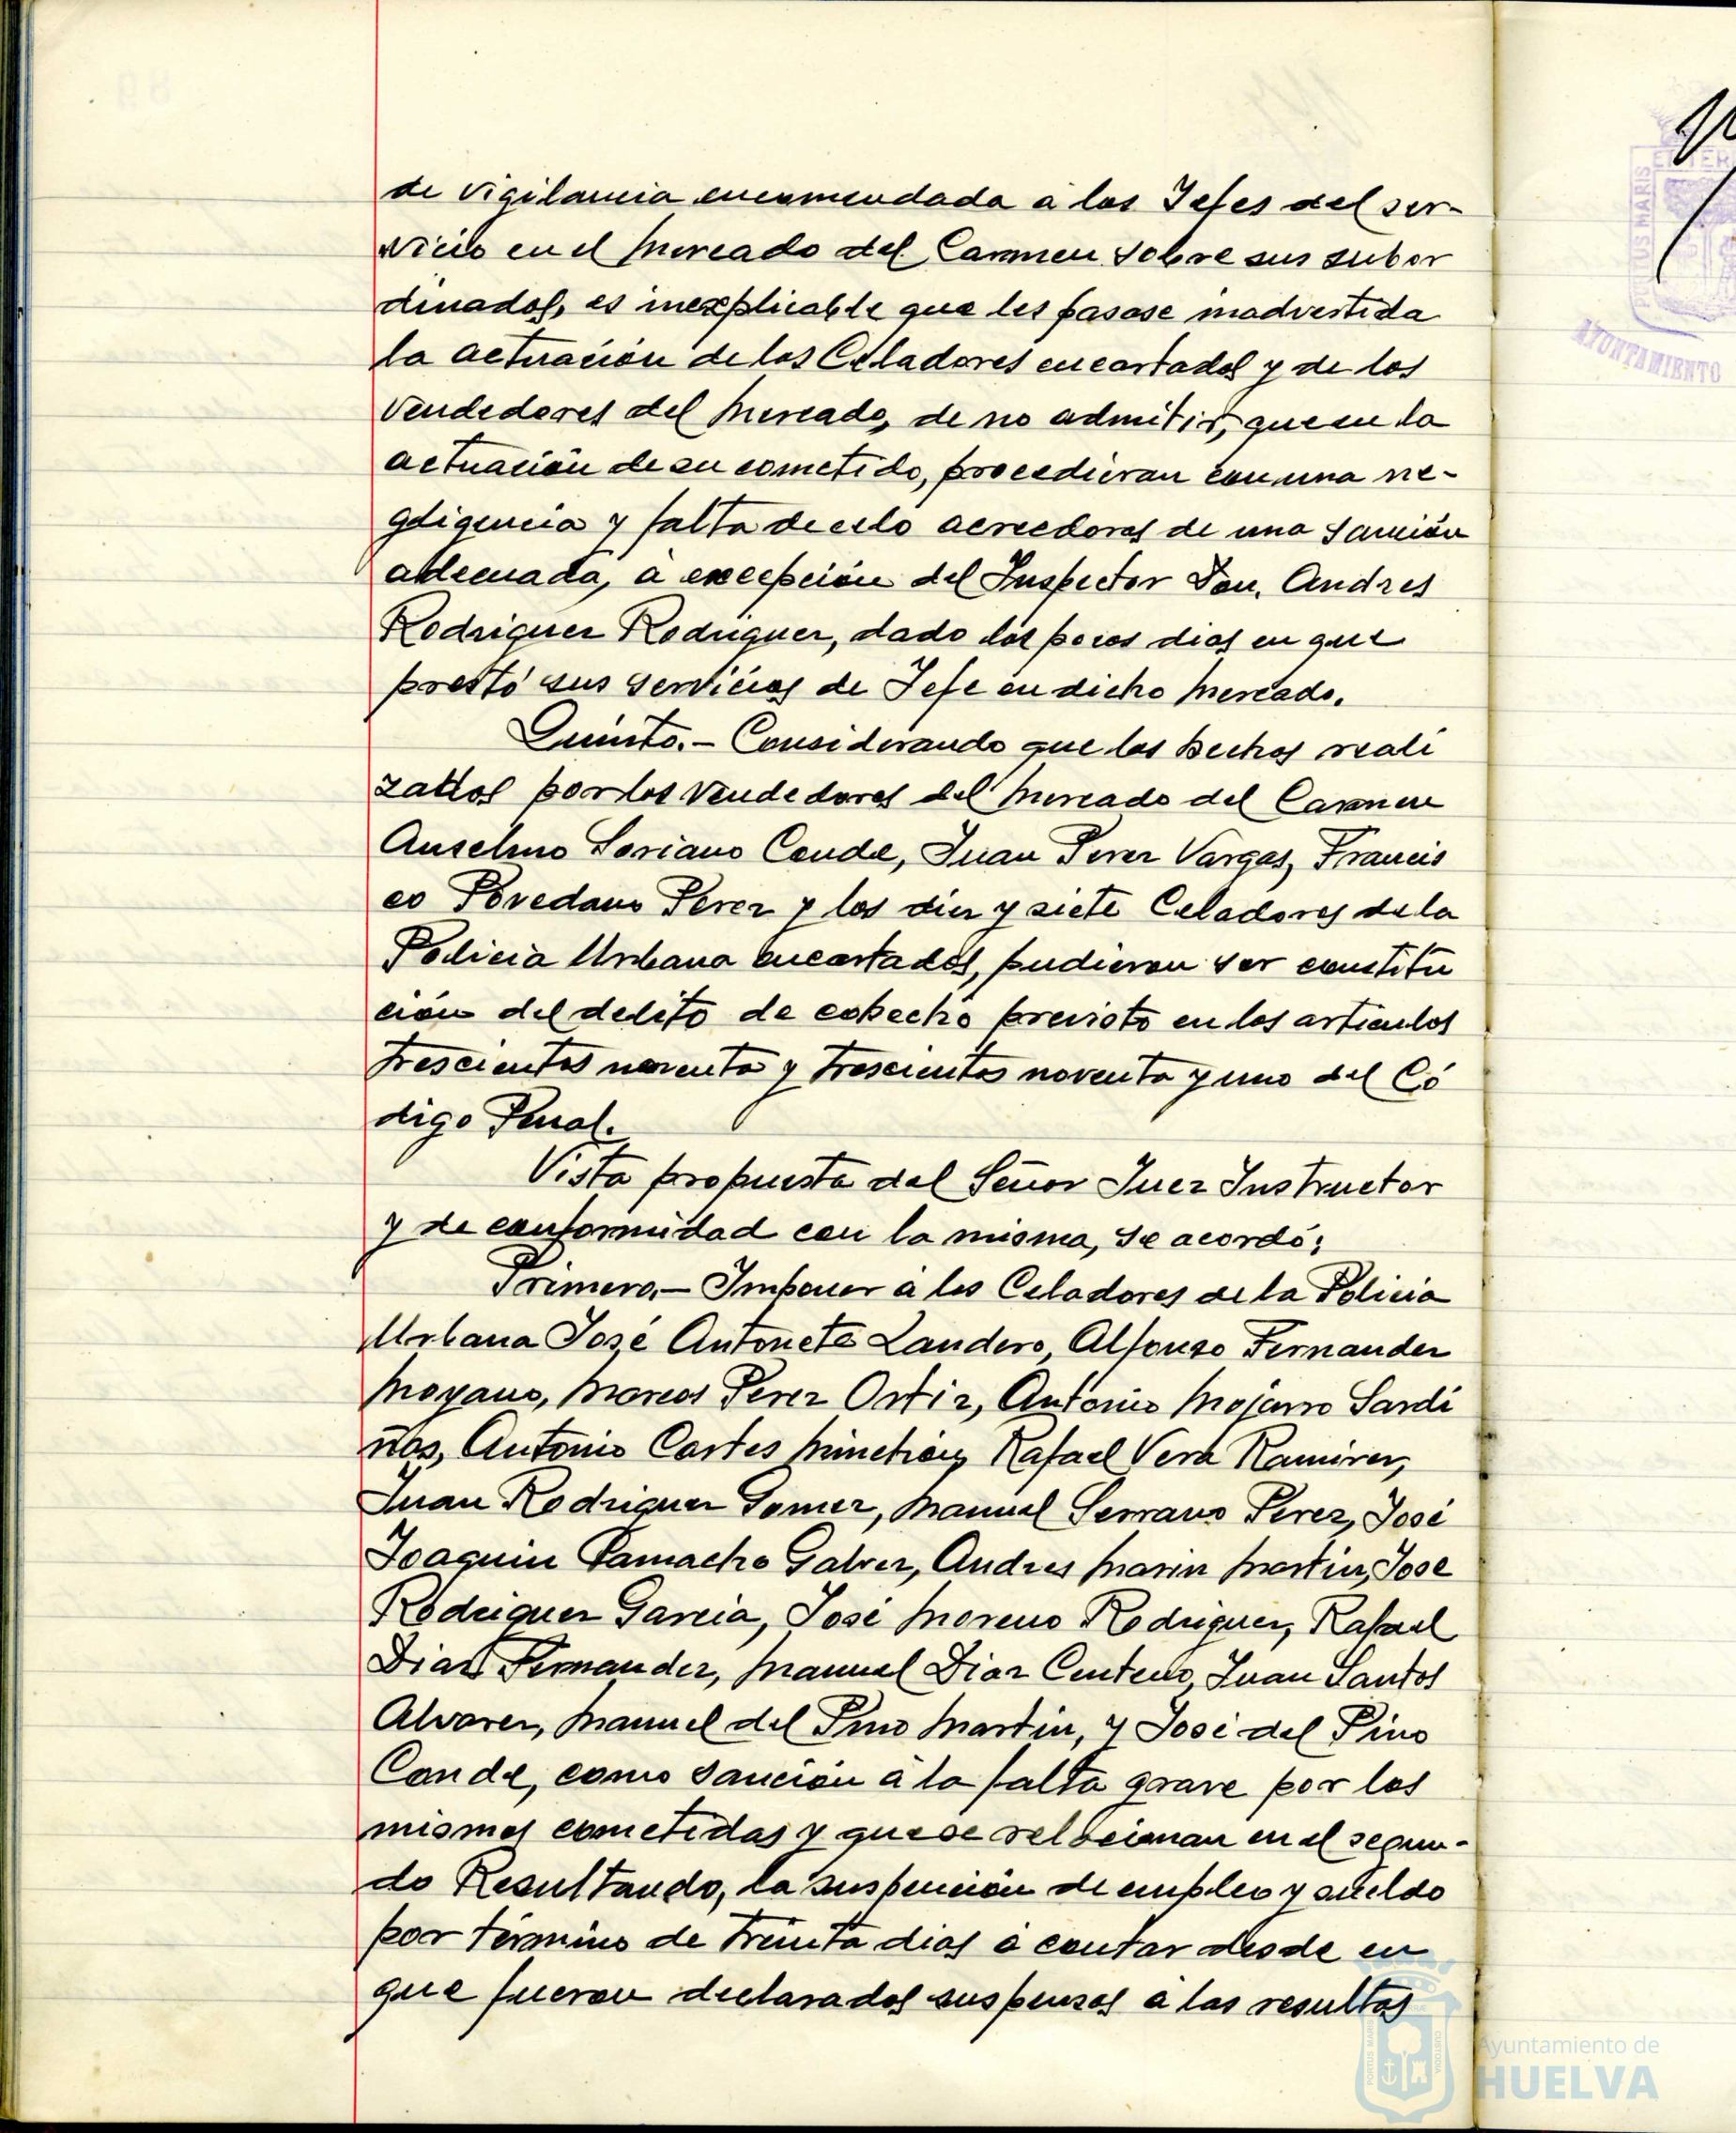 de vigilancia encomendada a los Jefes del ser-
vicio en el Mercado del Carmen sobre sus subor
dinados, es inexplicable que les pasase inadvertida
la actuación de los Celadores encartados y de los
vendedores del Mercado, de no admitir, que en la
actuación de su cometido, procedieran con una ne-
gligencia y falta de celo acreedoras de una sanción
adecuada, a excepción del Inspector Don. Andres
Rodriguez Rodriguez, dado los pocos dias en que
prestó sus servicios de Jefe en dicho Mercado.
Quinto.- Considerando que los hechos reali
zados por los vendedores del Mercado del Carmen
Anselmo Soriano Conde, Juan Perez Vargas, Francis
co Povedano Perez y los diez y siete Celadores de la
Policia Urbana encartados, pudieran ser constitu
ción del delito de cohecho previsto en los articulos
trescientos noventa y trescientos noventa y uno del Có
digo Penal.
Vista propuesta del Señor Juez Instructor
y de conformidad con la misma, se acordó:
Primero.- Imponer a los Celadores de la Policia
Urbana José Antonete Landero, Alfonso Fernandez
Moyano, Marcos Perez Ortiz, Antonio Mojarro Sardi
ñas, Antonio Cortes Rafael Vera Ramirez,
Juan Rodriguez Gomez, Manuel Serrano Perez, José
Joaquin Camacho Galvez, Andres Marin Martin, Jose
Rodriguez Garcia, José Moreno Rodriguez, Rafael
Diaz Fernandez, Manuel Diaz Centeno, Juan Santos
Alvarez, Manuel del Pino Martin, y José del Pino
Conde, como sanción a la falta grave por los
mismos cometidas y que se relacionan en el segun-
do Resultando, la suspención de empleo y sueldo
por término de treinta dias a contar desde en
que fueron declarados suspensos a las resultas
PORTUS MARIS
AYUNTAMIENTO
Ayuntamiento de
HUELVA